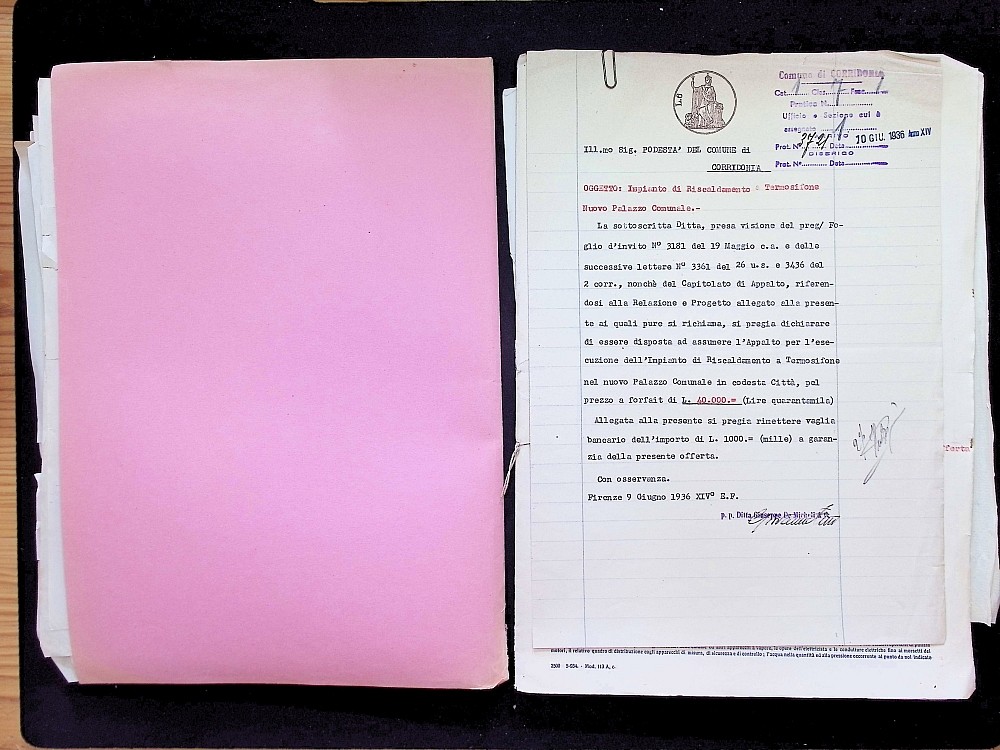 L.6
Comune di CORRIDONIA
Cat. 1 Clas. 7 Fasc. 1
Pratica N.
Ufficio o Sezione cui è
assegnata
Prot. N. Data 10 GIU. 1936 Anno XIV
Prot. N. Data
Ill.mo Sig. PODESTA' DEL COMUNE di
CORRIDONIA
OGGETTO: Impianto di Riscaldamento a Termosifone
Nuovo Palazzo Comunale.-
La sottoscritta Ditta, presa visione del preg/ Fo-
glio d'invito N° 3181 del 19 Maggio c.a. e delle
successive lettere N° 3361 del 26 u.s. e 3436 del
2 corr., nonchè del Capitolato di Appalto, riferen-
dosi alla Relazione e Progetto allegato alla presen-
te ai quali pure si richiama, si pregia dichiarare
di essere disposta ad assumere l'Appalto per l'ese-
cuzione dell'Impianto di Riscaldamento a Termosifone
nel nuovo Palazzo Comunale in codesta Città, pel
prezzo a forfait di L. 40.000.= (Lire quarantamila)
Allegata alla presente si pregia rimettere vaglia
bancario dell'importo di L. 1000.= (mille) a garan-
zia della presente offerta.
Con osservanza.
Firenze 9 Giugno 1936 XIV° E.F.
p. p. Ditta Giuseppe De Micheli & C.
ferta
motori, il relativo quadro di distribuzione cogli apparecchi di misura, di sicurezza e di controllo; l'acqua nella quantità ed alla pressione occorrente al punto da noi indicato
2500 - 2-934. - Mod. 113 A, c.